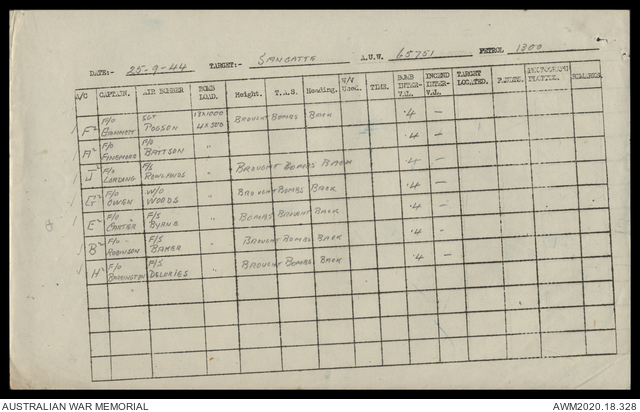 DATE:- 25-9-44 TARGET:- SANGATTE A.U.W. 65751 PETROL 1300
A/C CAPTAIN. AIR BOMBER BOMB LOAD. Height. T.A.S. Heading. W/V Used. TIME. BOMB INTER- VAL. INCEND INTER- VAL. TARGET LOCATED. FUSING. PHOTOGRAPH REMARKS.
F² F/O BENNETT SGT POGSON 13X1000 4X500 BROUGHT BOMBS BACK .4 —
A² F/O F/O BATTSON " .4 —
J² F/O F/S ROWLANDS " BROUGHT BOMBS BACK .4 —
G² F/O OWEN W/O WOODS " BROUGHT BOMBS BACK .4 —
E² F/O CARTER F/S BYRNE " BOMBS BROUGHT BACK .4 —
B² F/O ROBINSON F/S BAKER " BROUGHT BOMBS BACK .4 —
H² F/O F/S DELORIES " BROUGHT BOMBS BACK .4 —
AUSTRALIAN WAR MEMORIAL AWM2020.18.328